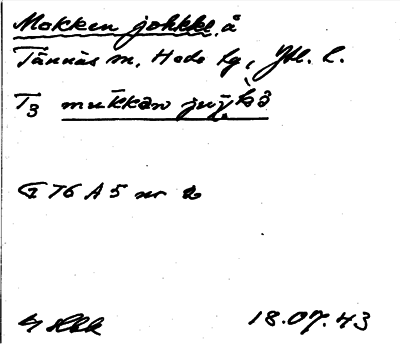 Mokken johkke, å
Tännäs sn, Hede tg, Jtl. l.
T3 mukkan
G T6 A 5 nr 2
18.07.43